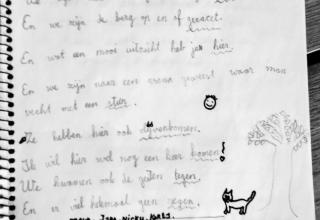 En we zijn de berg op en af geracet.
En wat een mooi uitzicht heb je hier.
En we zijn naar een arena geweest waar man
vecht met een stier.
Ze hebben hier ook olijvenbomen.
Ik wil hier wel nog een keer komen!
We kwamen ook de geiten tegen.
En er viel helemaal geen regen.